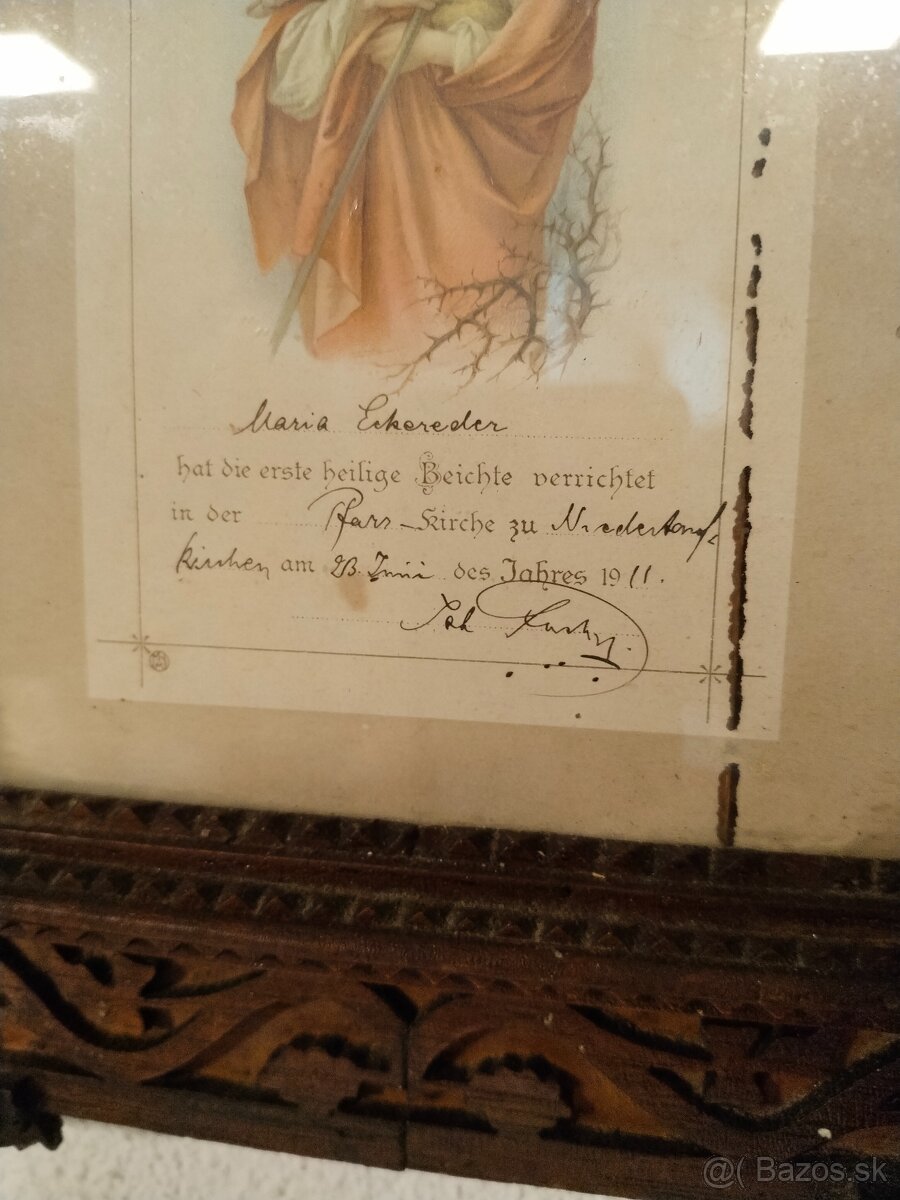 Maria Eckereder
hat die erste heilige Beichte verrichtet
in der Pfarr-Kirche zu Niedertauf-
kirchen am 23. Juni des Jahres 1911.
Joh
@( Bazos.sk